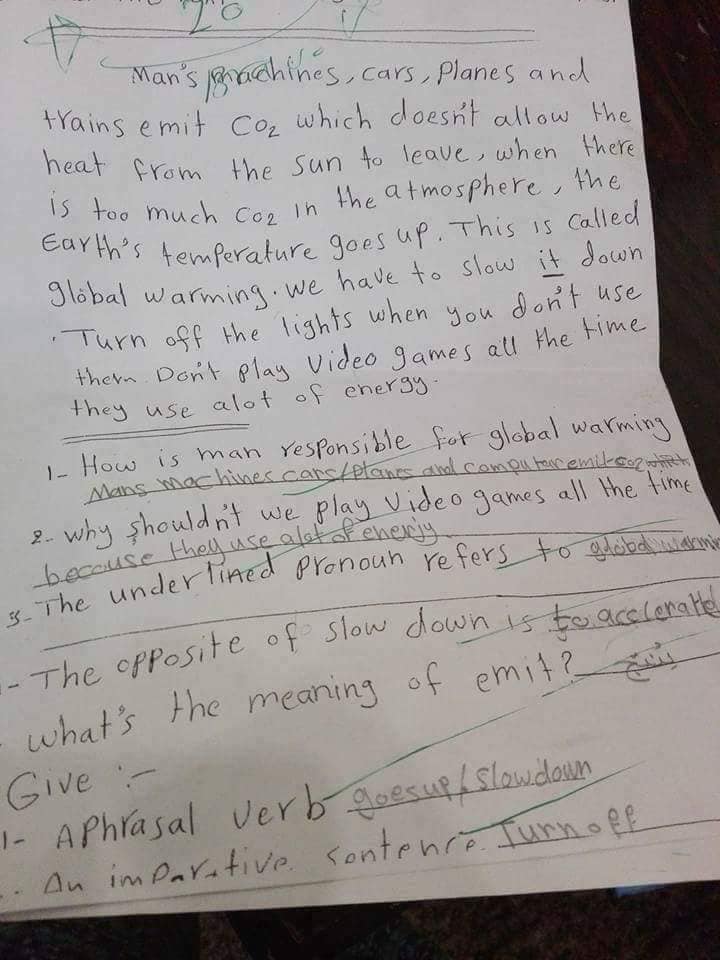 Man's machines, cars, Planes and
trains emit CO2 which doesn't allow the
heat from the sun to leave, when there
is too much CO2 in the atmosphere, the
Earth's temperature goes up. This is called
global warming. We have to slow it down
. Turn off the lights when you don't use
them. Don't play Video games all the time
they use alot of energy.
1- How is man responsible for global warming
Mans machines cars/planes and computer emit co2 which
2- why shouldn't we play Video games all the time
because they use alot of energy
3- The underlined pronoun refers to global warming
- The opposite of slow down is to accleratted
- what's the meaning of emit? ينتج
Give :-
1- A Phrasal verb goes up/slow down
.. An imparative sentence. Turn off